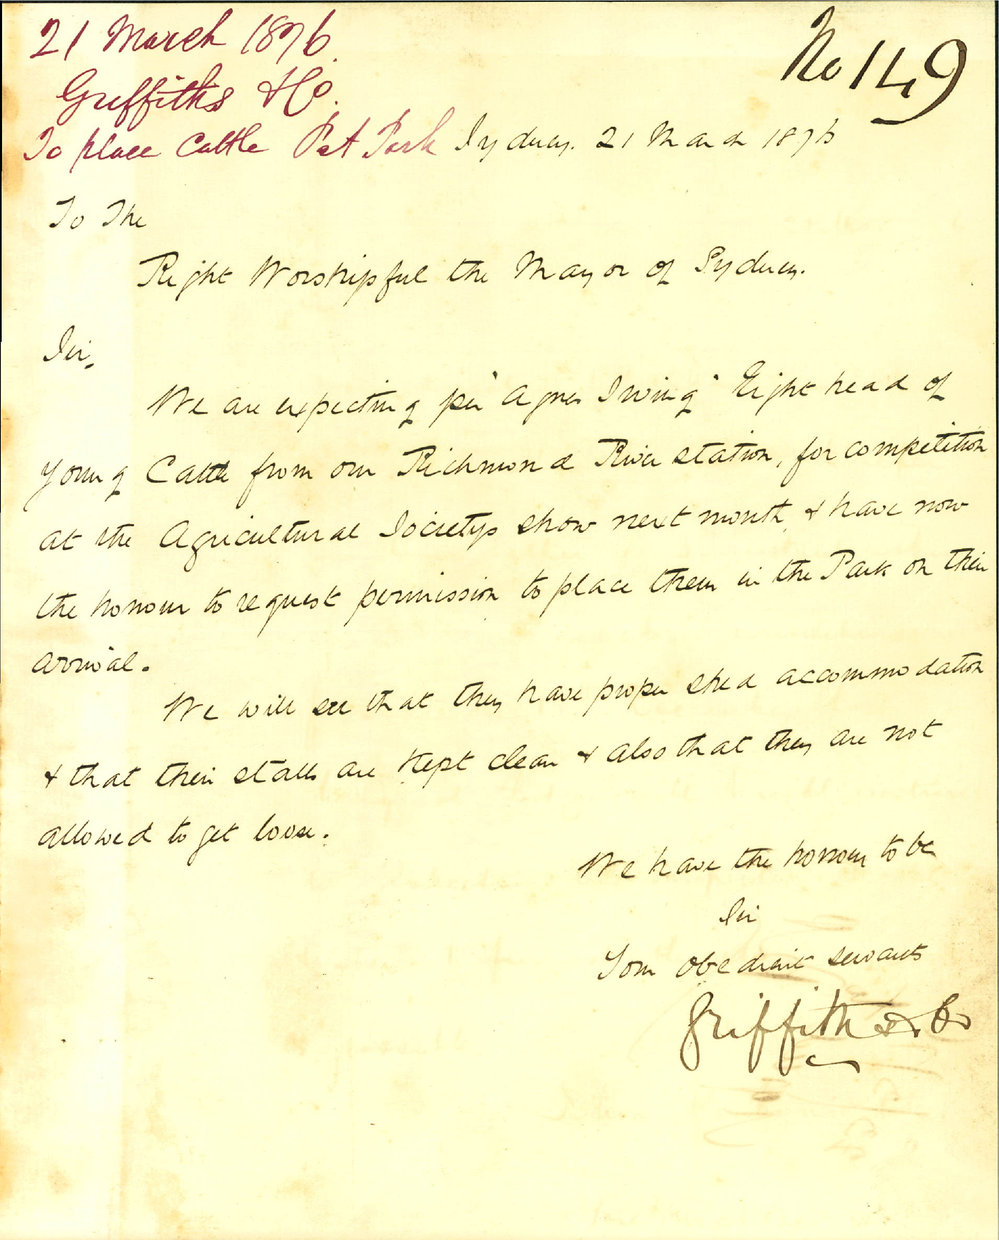 21 March 1876
No 149
Griffiths & Co.
To place Cattle Pst Park
Sydney. 21 March 1876
To The
Right Worshipful the Mayor of Sydney.
Sir,
We are expecting per "Agnes Irving" Eight head of
young Cattle from our Richmond River station, for competition
at the Agricultural Societys show next month & have now
the honour to request permission to place them in the Park on their
arrival.
We will see that they have proper shed accommodation
& that their stalls are kept clean & also that they are not
allowed to get loose.
We have the honour to be
Sir
Your obedient servants
Griffith & Co